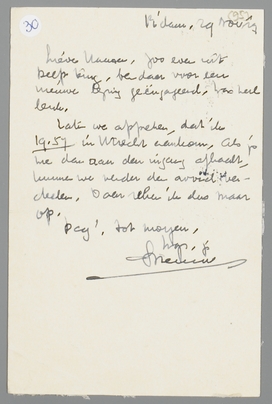 30
A'dam, 29 Nov.
Lieve Manan, zoo even uit
ben daar voor een
nieuwe lezing geëngageerd. Was heel
leuk.
Laten we afspreken, dat ik
19.57 in Utrecht aankom. Als je
me dan aan den uitgang afhaalt,
kunnen we verder den avond ver-
deelen. Daar reken ik dus maar
op.
Dag! tot morgen,
je